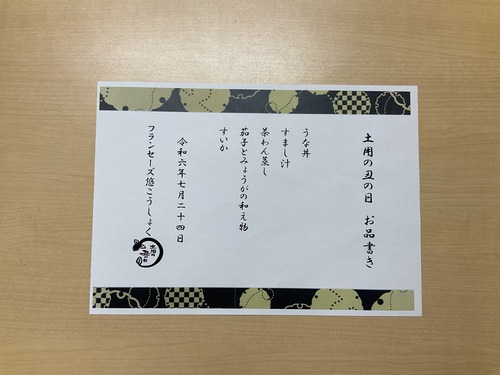 土用の丑の日　お品書き
うな丼
すまし汁
茶わん蒸し
茄子とみょうがの和え物
すいか
令和六年七月二十四日
フランセーズ悠こうしょく